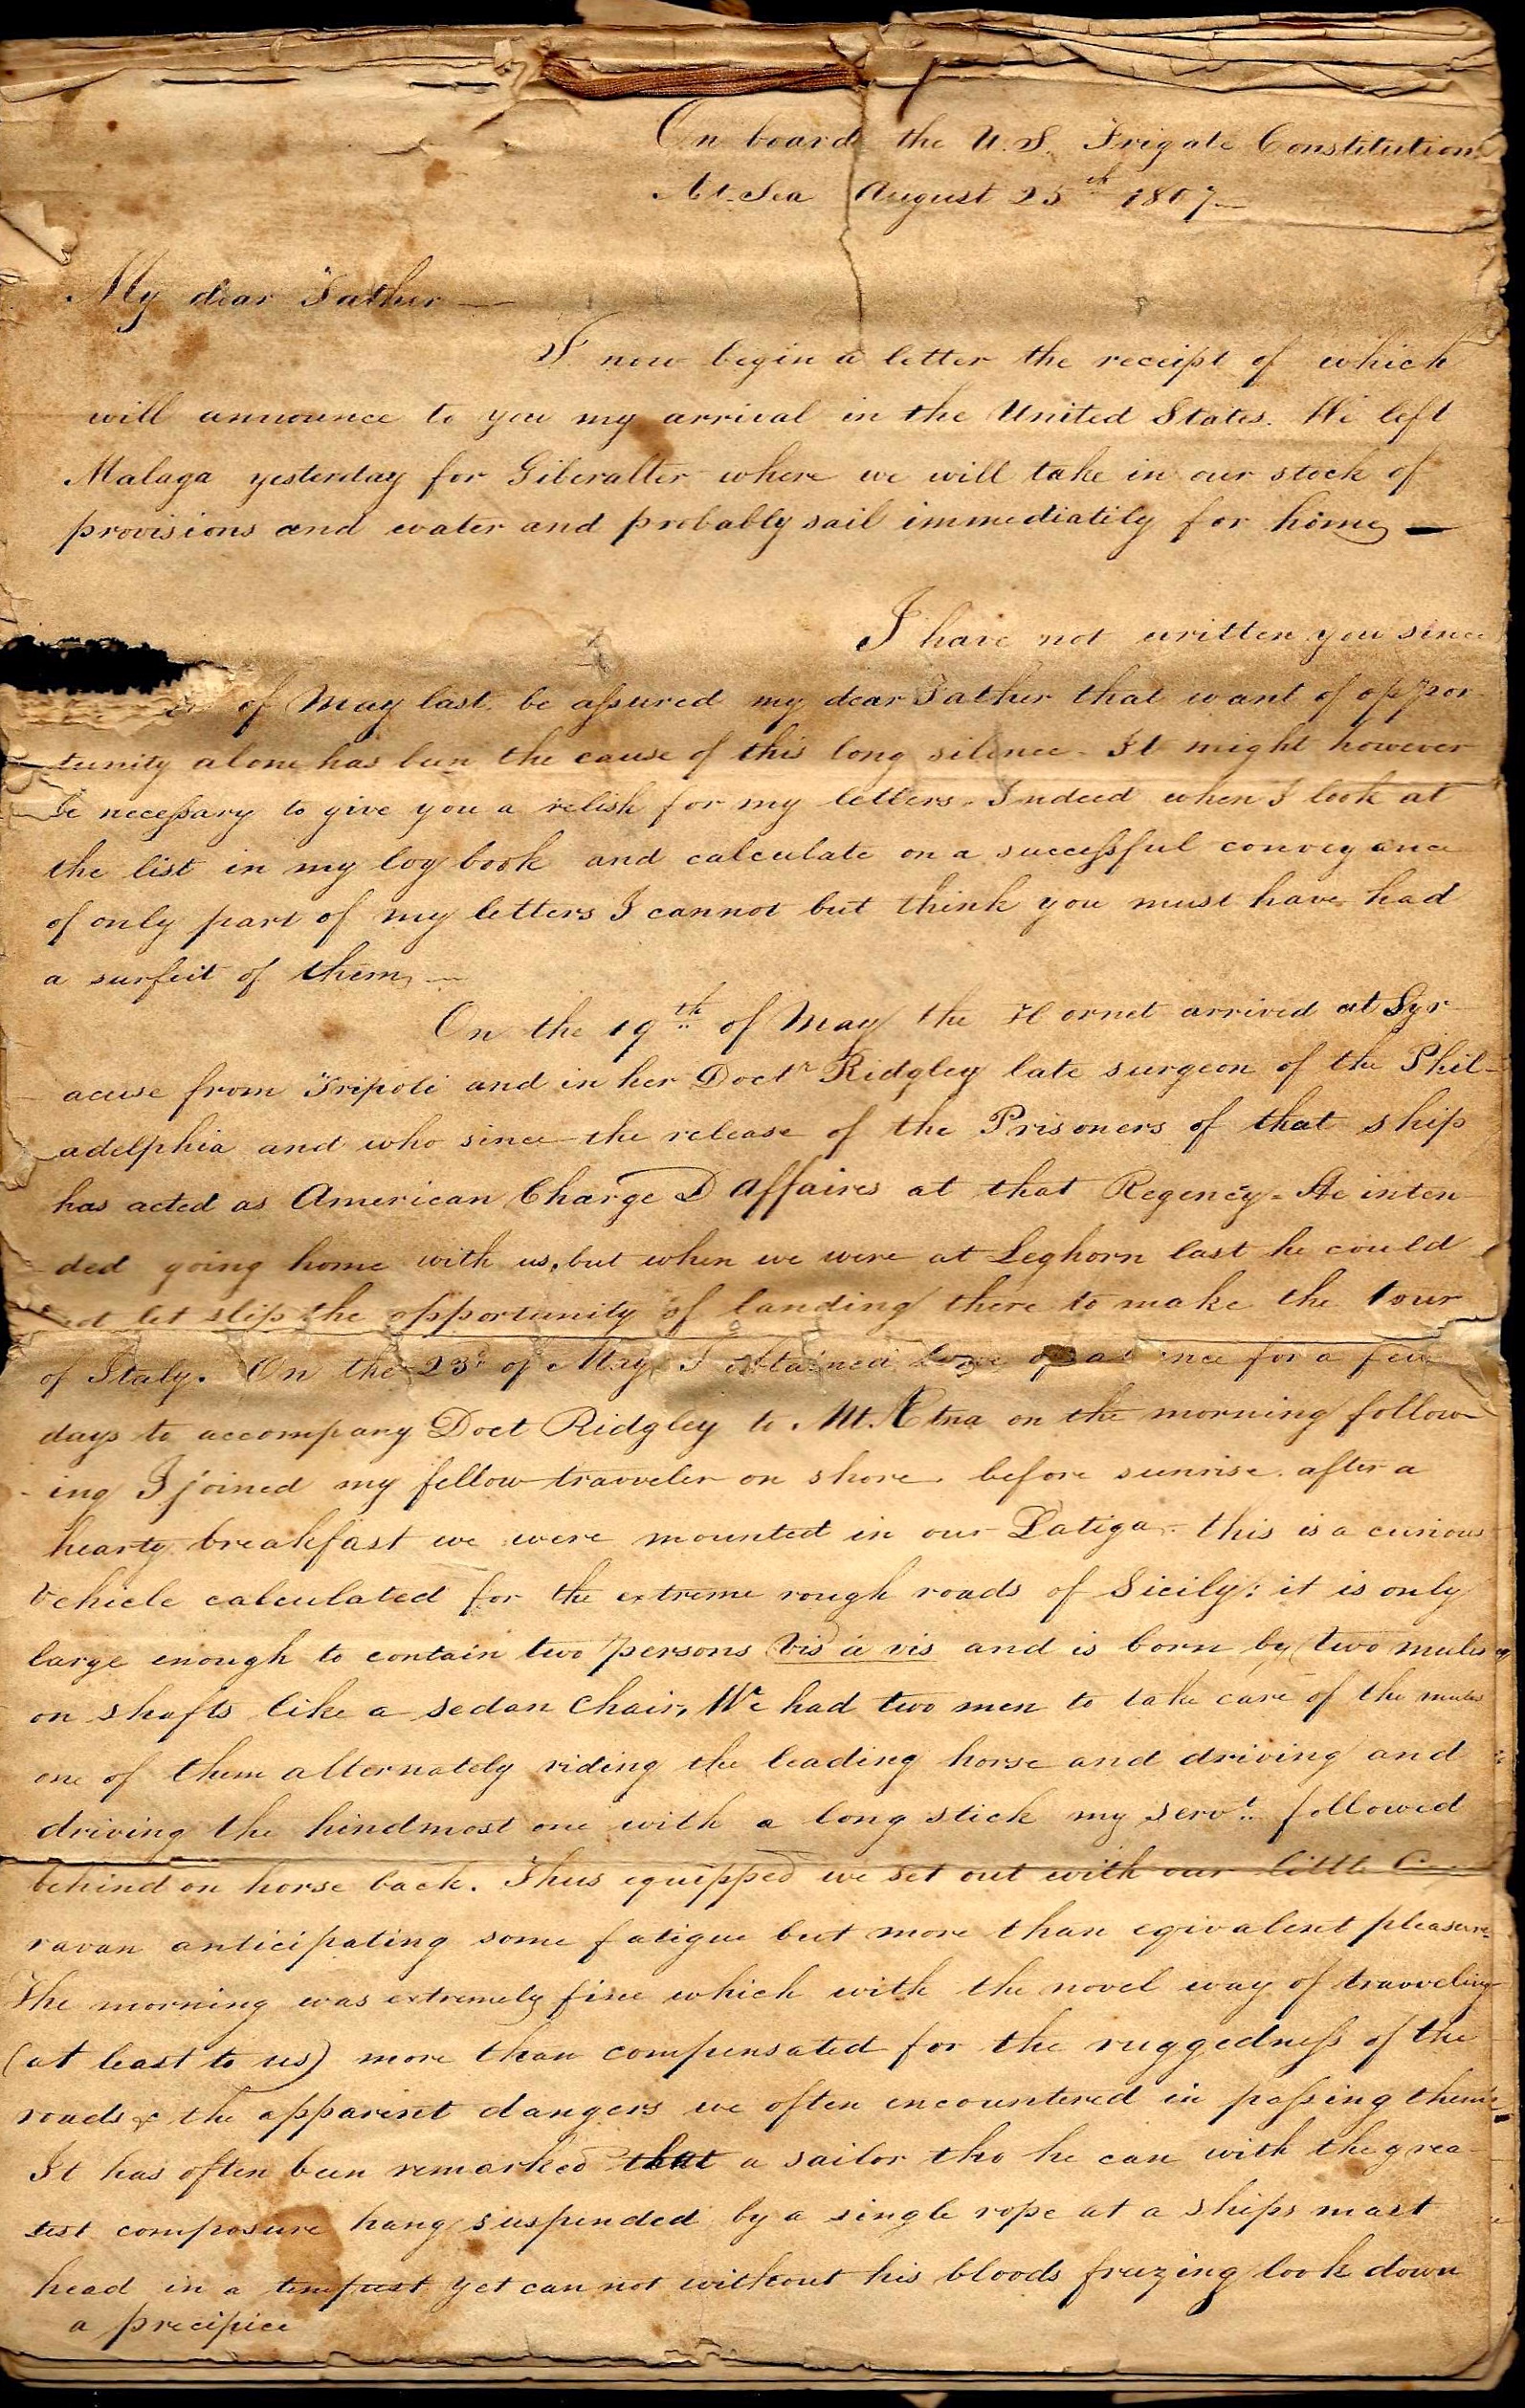 On board the U.S. Frigate Constitution
At Sea August 25th 1807
My dear Father —
I now begin a letter the receipt of which
will announce to you my arrival in the United States. We left
Malaga yesterday for Giberalter where we will take in our stock of
provisions and water and probably sail immediatily for home —
I have not written you since
of May last. be assured my dear Father that want of oppor-
tunity alone has been the cause of this long silence - It might however
be necessary to give you a relish for my letters. Indeed when I look at
the list in my log book and calculate on a successful conveyance
of only part of my letters I cannot but think you must have had
a surfeit of them —
On the 19th of May the Hornet arrived at Syr-
acuse from Tripoli and in her Doctr Ridgley late surgeon of the Phil-
adelphia and who since the release of the Prisoners of that ship
has acted as American Charge D Affaires at that Regency - He inten-
ded going home with us, but when we were at Leghorn last he could
not let slip the opportunity of landing there to make the tour
of Italy. On the 23d of May I obtained for a few
days to accompany Doct Ridgley to Mt. Ætna on the morning follow-
ing I joined my fellow travveler on shore before sunrise. after a
hearty breakfast we were mounted in our Latiga - this is a curious
vehicle calculated for the extreme rough roads of Sicily: it is only
large enough to contain two persons vis à vis and is born by two mules
on shafts like a sedan chair, We had two men to take care of the mules
one of them alternately riding the leading horse and driving and
driving the hindmost one with a long stick my servt. followed
behind on horse back. Thus equipped we set out with our little Ca-
ravan anticipating some fatigue but more than eqivalent pleasure.
The morning was extremely fine which with the novel way of travveling
(at least to us) more than compensated for the ruggedness of the
roads & the apparent dangers we often encountered in passing them.
It has often been remarked that a sailor tho he can with the grea-
test composure hang suspended by a single rope at a ships mast
head in a tempest yet can not without his bloods freezing look down
a precipice